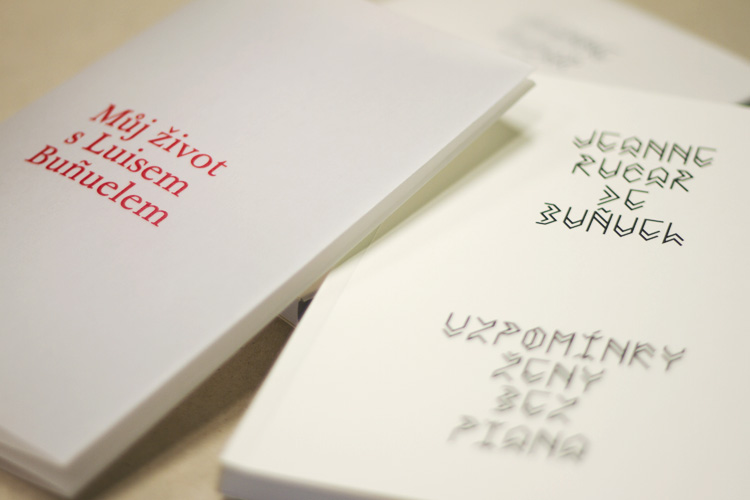 Můj život
s Luisem
Buñuelem
JEANNE
RUCAR
DE
BUÑUEL
VZPOMÍNKY
ŽENY
BEZ
PIANA